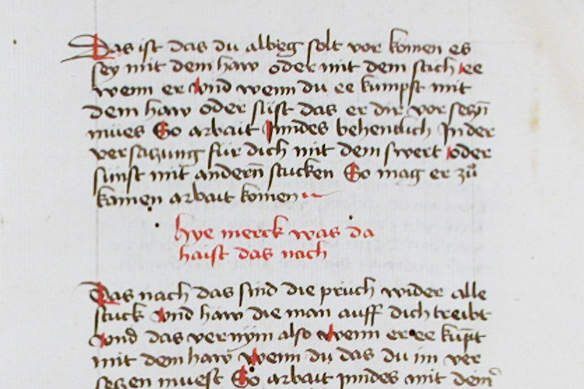 Das ist das du albeg solt vor komen es
sey mit dem haw oder mit dem stich ee
wenn er Vnd wenn du ee kumpst mit
dem haw oder süst das er dir vor seczñ
mües So arbait Jnndes behentlich Jn der
versaczung für dich mit dem swert oder
sunst mit anderñ stucken So mag er zů
kainen arbait komen
hye merck was da
haist das nach
Das nach das sind die prüch wider alle
stuck vnd haw die man auff dich treibt
vnd das vernÿm also Wenn er ee kũpt
mit dem haw Wenn du das du im ver
seczen muest So arbait jnndes mit dem